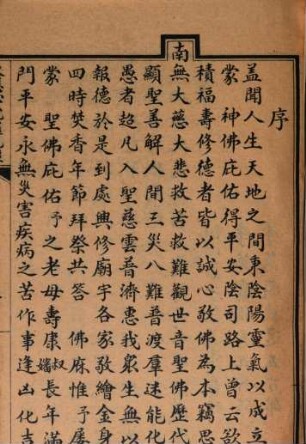 序
蓋聞人生天地之間東陰陽靈氣以成立
蒙　神佛庇佑得平安陰司路上曾云欲
積福壽修德者皆以誠心敬佛為本竊思
南無大慈大悲救苦救難觀世音聖佛歷代
顯聖善解人間三災八難普渡羣迷能化
愚者超凡入聖慈雲普濟惠我眾生無以
報德於是到處興修廟宇各家敬繪金身
四時焚香年節拜祭共答　佛庥惟予屢
蒙　聖佛庇佑予之老母壽康叔嬸長年滿
門平安永無災害疾病之苦作事逢凶化吉